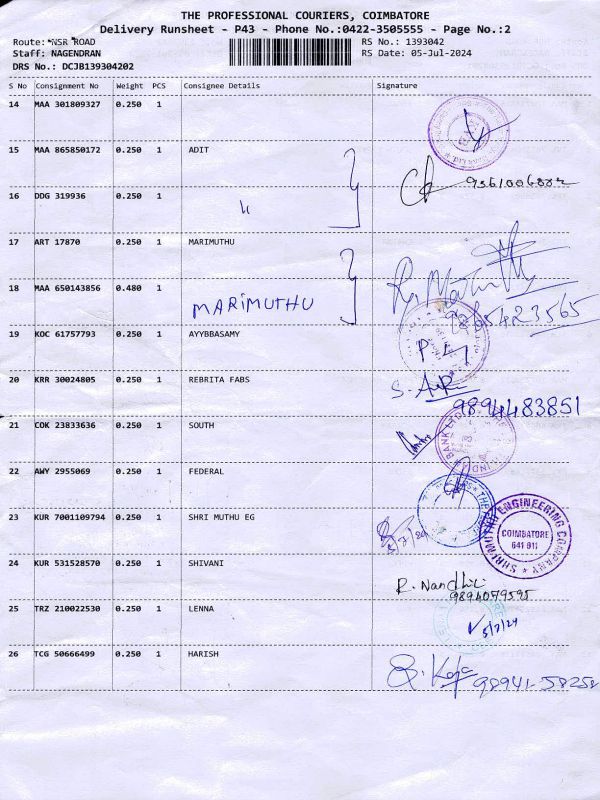 THE PROFESSIONAL COURIERS, COIMBATORE
Delivery Runsheet - P43 - Phone No.:0422-3505555 - Page No.:2
Route: *NSR ROAD RS No.: 1393042
Staff: NAGENDRAN RS Date: 05-Jul-2024
DRS No.: DCJB139304202
S No Consignment No Weight PCS Consignee Details Signature
14 MAA 301809327 0.250 1
15 MAA 865850172 0.250 1 ADIT
16 DDG 319936 0.250 1
9561006882
17 ART 17870 0.250 1 MARIMUTHU
18 MAA 650143856 0.480 1
MARIMUTHU
9865423565
19 KOC 61757793 0.250 1 AYYBBASAMY
20 KRR 30024805 0.250 1 REBRITA FABS
9894483851
21 COK 23833636 0.250 1 SOUTH
22 AWY 2955069 0.250 1 FEDERAL
23 KUR 7001109794 0.250 1 SHRI MUTHU EG
SHRI MUTHU ENGINEERING COMPANY
COIMBATORE
641 911
24 KUR 531528570 0.250 1 SHIVANI
R. Nandhi
9894079595
25 TRZ 210022530 0.250 1 LENNA
5/7/24
26 TCG 50666499 0.250 1 HARISH
98941-58258